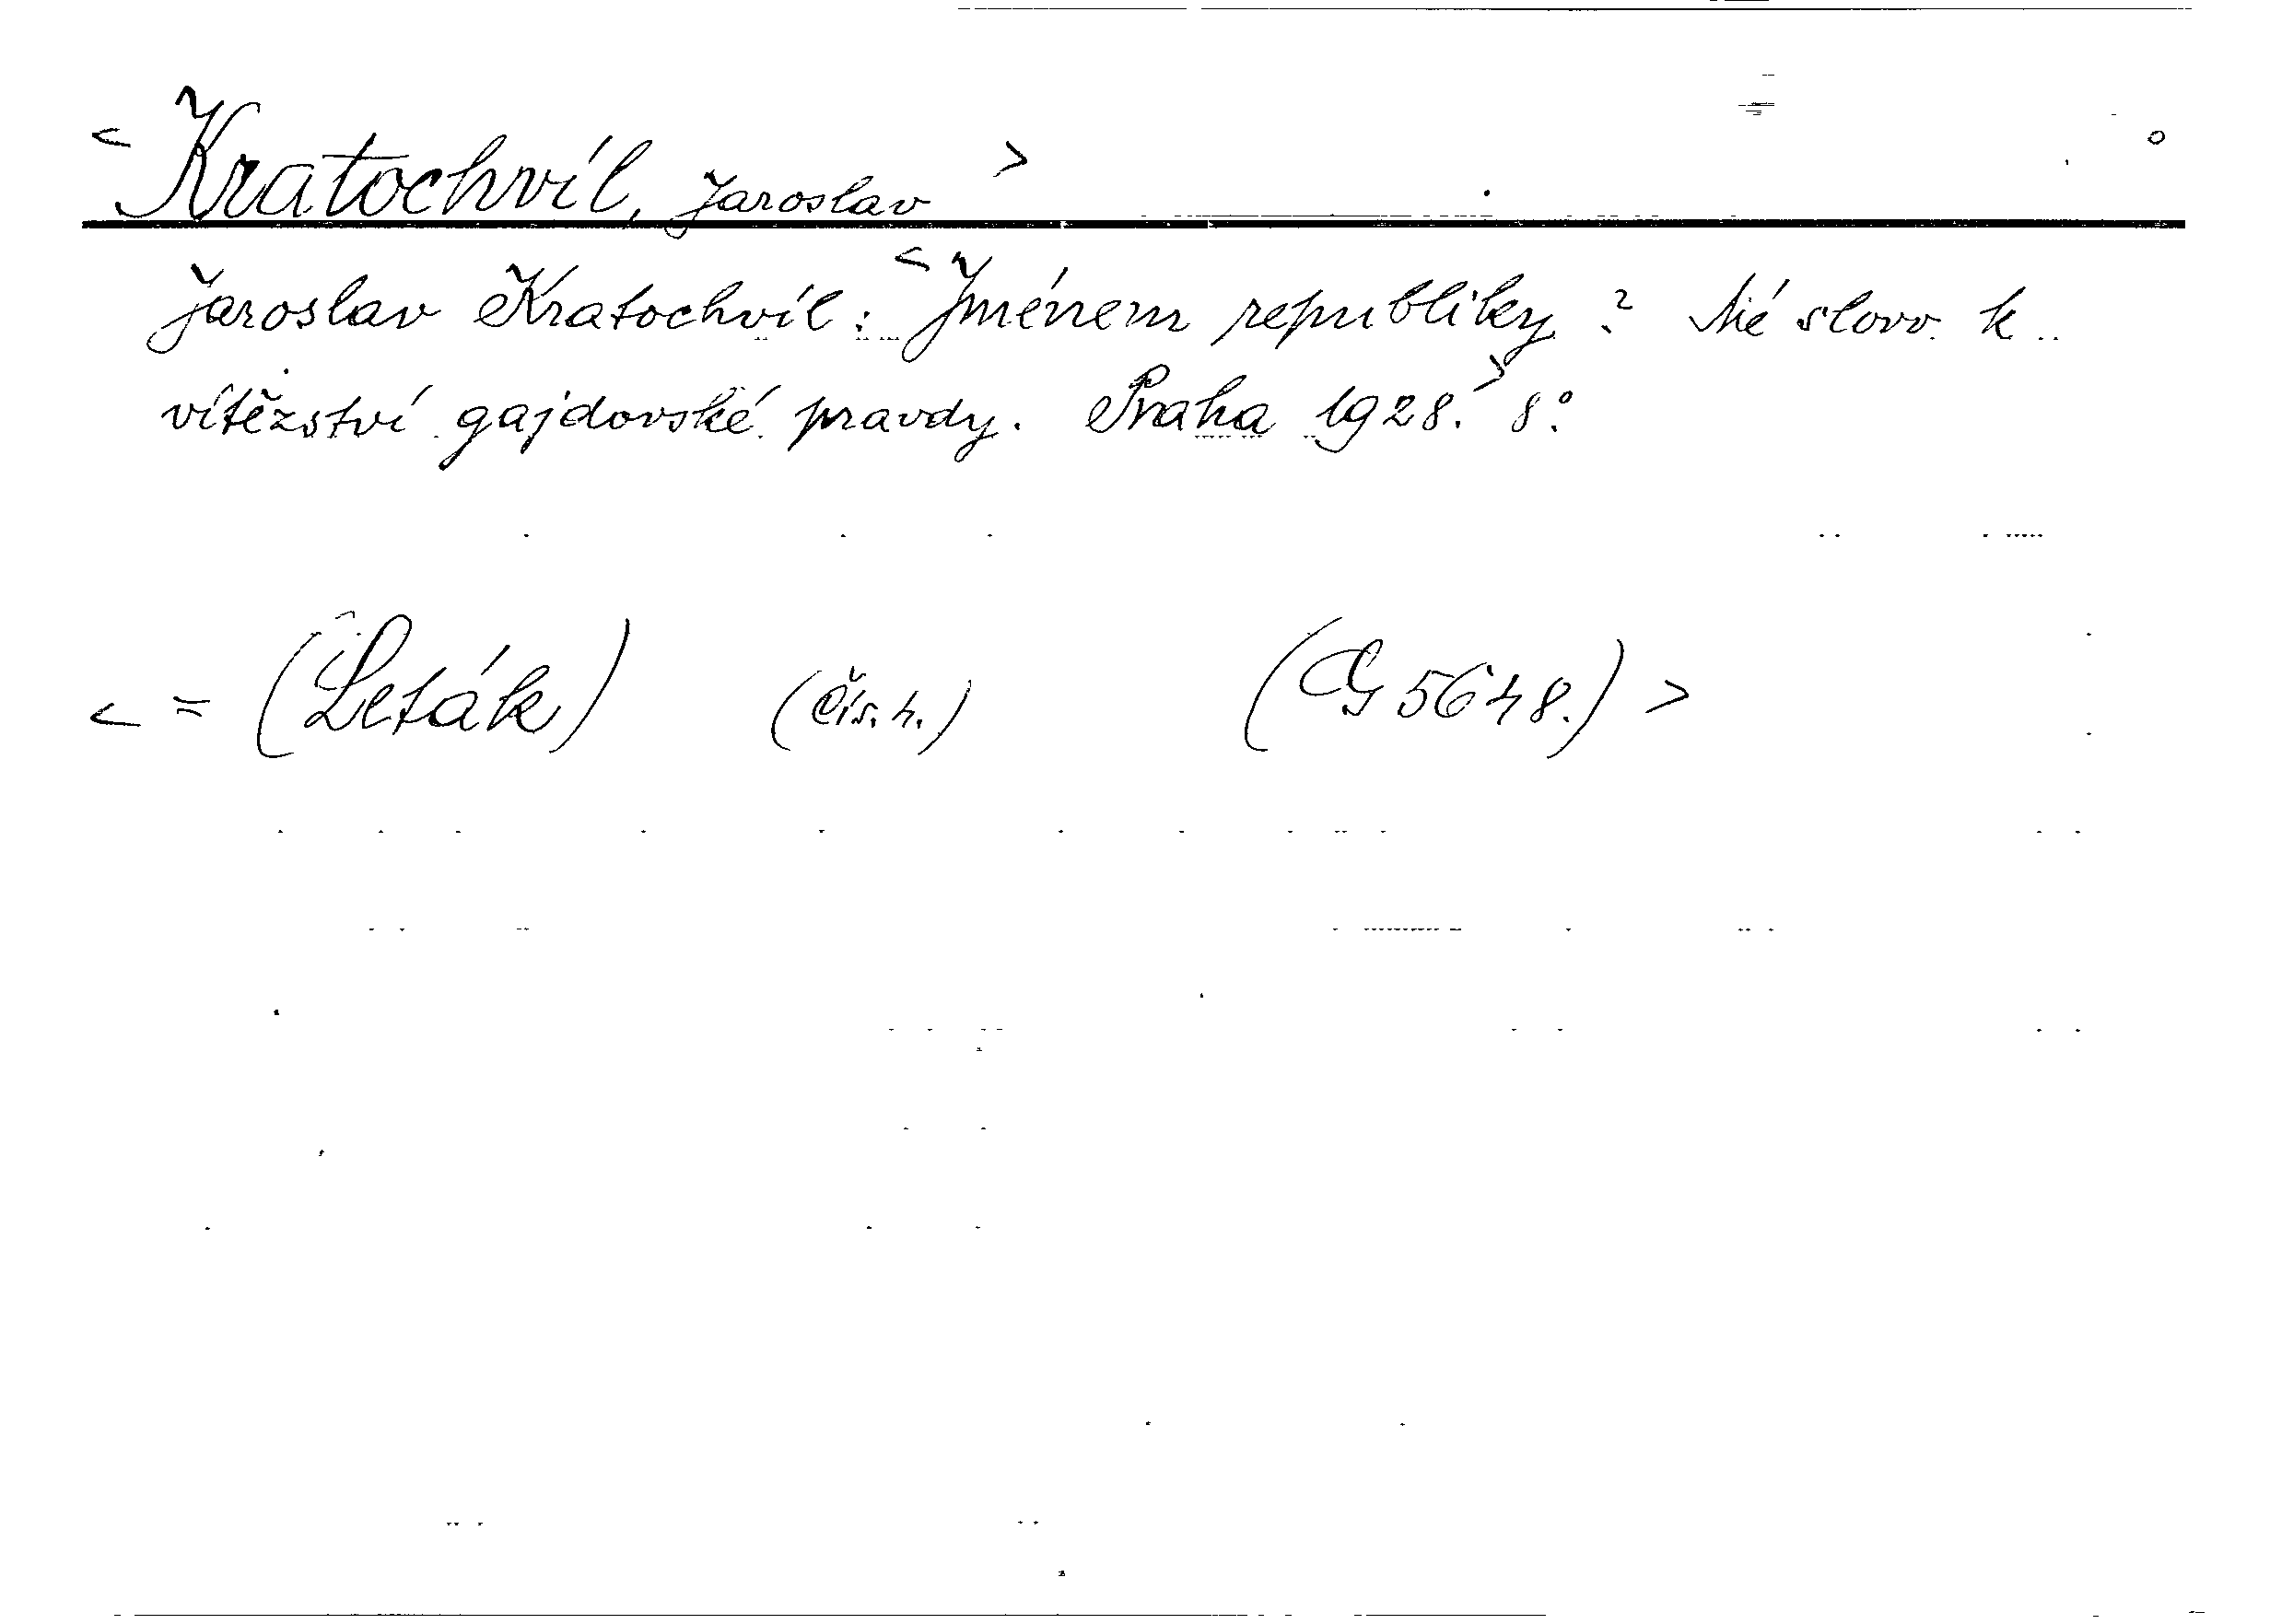 < Kratochvíl, Jaroslav >
Jaroslav Kratochvíl: < Jménem republiky > ? Mé slovo k
vítězství gajdovské pravdy. Praha 1928. 8°.
< = (Leták) (čís. 4.) (G 5648.) >